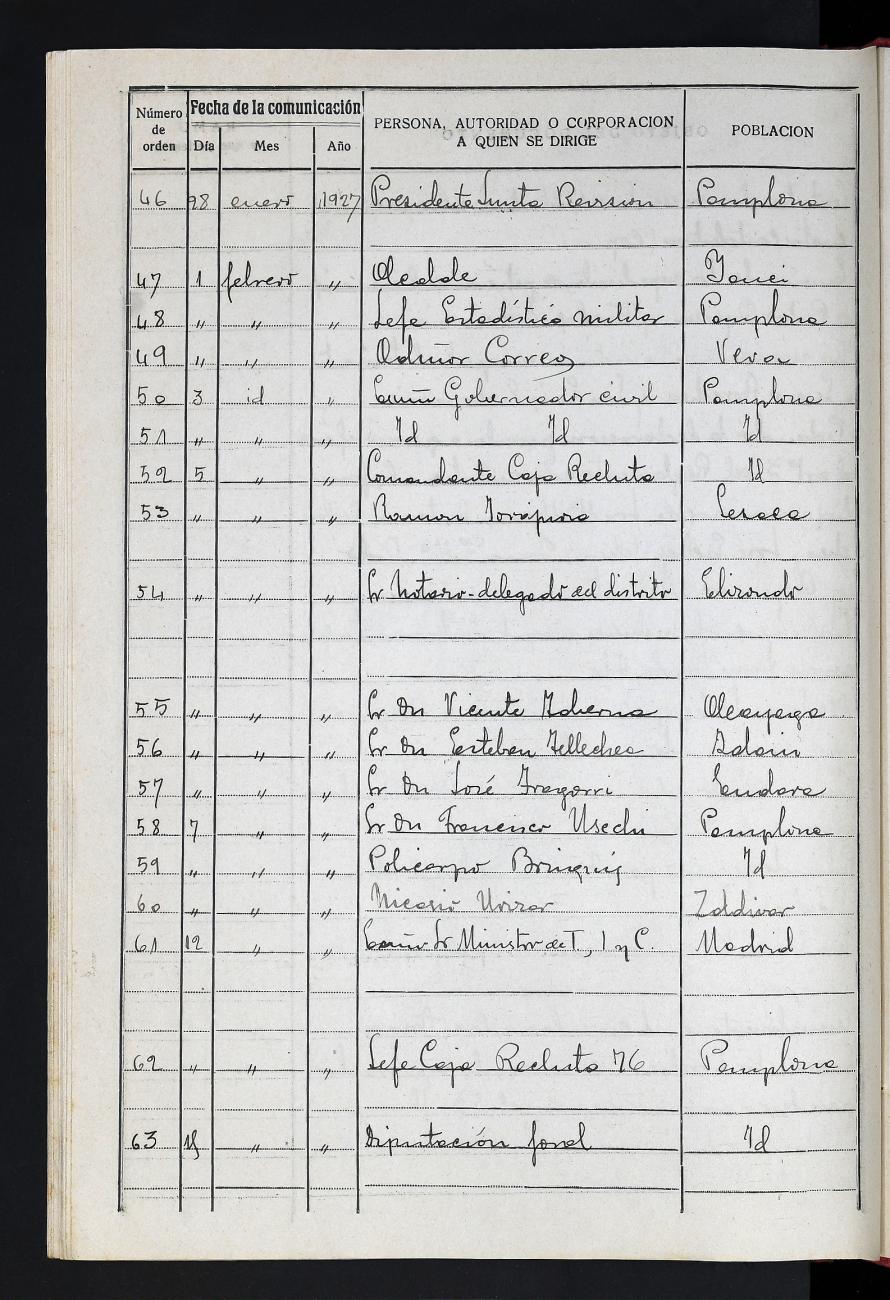 Número de orden | Fecha de la comunicación | PERSONA, AUTORIDAD O CORPORACION A QUIEN SE DIRIGE | POBLACION
Día | Mes | Año
46 28 enero 1927 Presidente Junta Revision Pamplona
47 1 febrero " Alcalde Yanci
48 " " " Jefe Estadística militar Pamplona
49 " " " Admor Correos Vera
50 3 id " Gobernador civil Pamplona
51 " " " Id Id Id
52 5 " " Comandante Caja Recluta Id
53 " " " Ramon Lesaca
54 " " " Sr Notario-delegado del distrito Elizondo
55 " " " Sr Dn Vicente Alcayaga
56 " " " Sr Dn Esteban Tellechea
57 " " " Sr Dn José Endara
58 7 " " Sr Dn Francisco Usechi Pamplona
59 " " " Policarpo Id
60 " " " Nicasio Zaldivar
61 12 " " Sr Ministro de T, I y C. Madrid
62 " " " Jefe Caja Recluta 76 Pamplona
63 15 " " Diputación foral Id